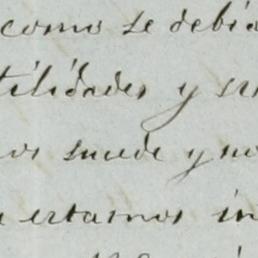 como se debia
tilidades y su
os sucede y no
estamos in